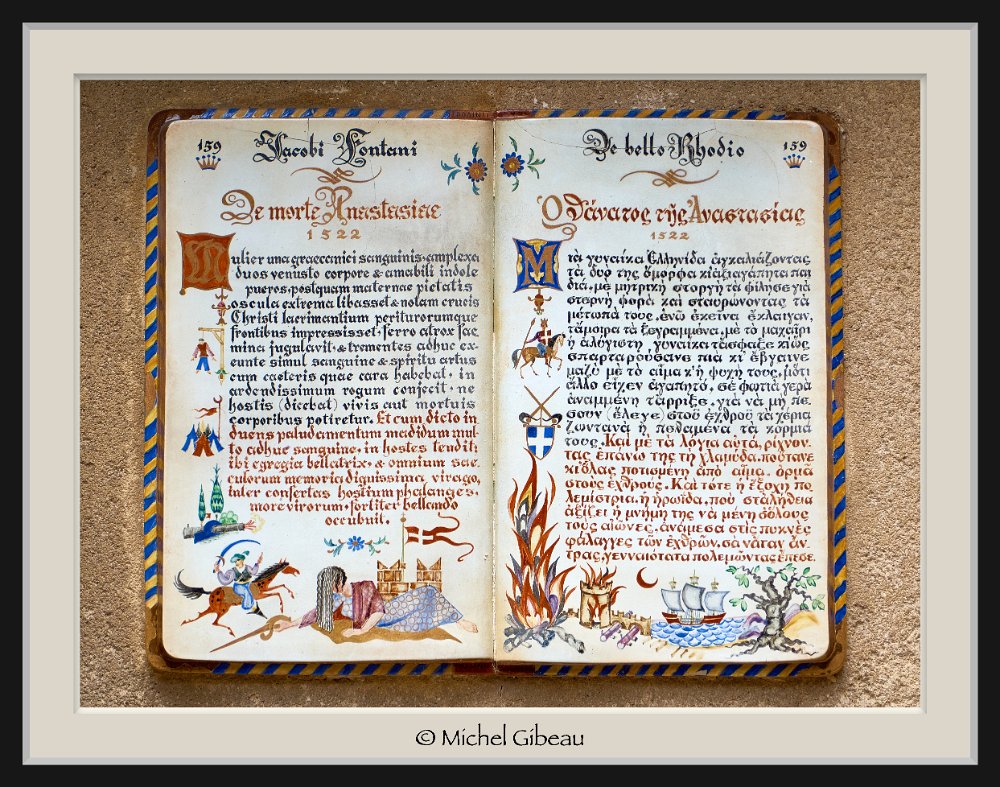 159
Jacobi Fontani
De morte Anastasiae
1522
Mulier una graecanici sanguinis, amplexa
duos venusto corpore & amabili indole
pueros, postquam maternae pietatis
oscula extrema libasset & nolam crucis
Christi lacrimantium periturorumque
frontibus impressisset, ferro atrox fae
mina jugulavit, & trementes adhuc ex-
eunte simul sanguine & spiritu artus
cum caeteris quae cara habebat, in
ardendissimum rogum conjecit, ne
hostis (dicebat) vivis aut mortuis
corporibus potiretur. Et cum dicto in
duens paludamentum madidum mul-
to adhuc sanguine, in hostes tendit,
ibi egregia bellatrix, & omnium sae-
culorum memoria dignissima virago,
inter confertas hostium phalanges,
more virorum, fortiter bellando
occubuit.
De bello Rhodio
159
Ὁ θάνατος τῆς Ἀναστασίας
1522
Μιὰ γυναίκα Ἑλληνίδα ἀγκαλιάζοντας
τὰ δυὸ της ὄμορφα κι ἀξιαγάπητα παι
διά, μὲ μητρικὴ στοργὴ τὰ φίλησε γιὰ
στερνὴ φορὰ καὶ σταυρώνοντας τὰ
μέτωπά τους, ἐνῶ ἐκεῖνα ἔκλαιγαν,
τἄμοιρα τὰ ξωγραμμένα, μὲ τὸ μαχαίρι
ἡ ἀλόγιστη γυναίκα τἄσφαξε κι ὡς
σπαρταρούσανε πιὰ κι ἔβγαινε
μαζὺ μὲ τὸ αἷμα κ' ἡ ψυχή τους, μ' ὅτι
ἄλλο εἶχεν ἀγαπητό, σὲ φωτιὰ γερὰ
ἀναμμένη τἄρριξε, γιὰ νὰ μὴ πέ-
σουν (ἔλεγε) στοῦ ἐχθροῦ τὰ χέρια
ζωντανὰ ἢ πεθαμένα τὰ κορμιά
τους. Καὶ μὲ τὰ λόγια αὐτά, ρίχνον-
τας ἐπάνω της τὴ χλαμύδα, ποὔτανε
κι ὅλας ποτισμένη ἀπὸ αἷμα, ὁρμᾶ
στοὺς ἐχθρούς. Καὶ τότε ἡ ἔξοχη πο
λεμίστρια, ἡ ἡρωΐδα, ποὺ στ' ἀλήθεια
ἀξίζει ἡ μνήμη της νὰ μένῃ σ' ὅλους
τοὺς αἰῶνες, ἀνάμεσα στὶς πυκνὲς
φάλαγγες τῶν ἐχθρῶν, σὰ νἆταν ἄν-
τρας, γενναιότατα πολεμῶντας ἔπεσε.
© Michel Gibeau